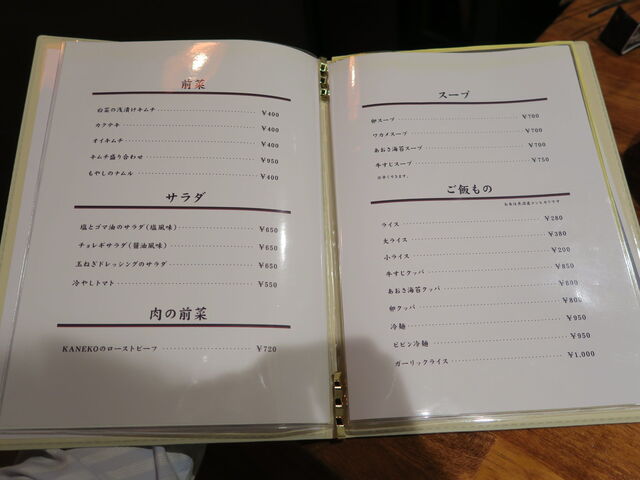 前菜
白菜の浅漬けキムチ ¥400
カクテキ ¥400
オイキムチ ¥400
キムチ盛り合わせ ¥950
もやしのナムル ¥400
サラダ
塩とゴマ油のサラダ(塩風味) ¥650
チョレギサラダ(醤油風味) ¥650
玉ねぎドレッシングのサラダ ¥650
冷やしトマト ¥550
肉の前菜
KANEKOのローストビーフ ¥720
スープ
卵スープ ¥700
ワカメスープ ¥700
あおさ海苔スープ ¥700
牛すじスープ ¥750
ご飯もの
ライス ¥280
大ライス ¥380
小ライス ¥200
牛すじクッパ ¥850
あおさ海苔クッパ ¥800
卵クッパ ¥800
冷麺 ¥950
ビビン冷麺 ¥950
ガーリックライス ¥1,000